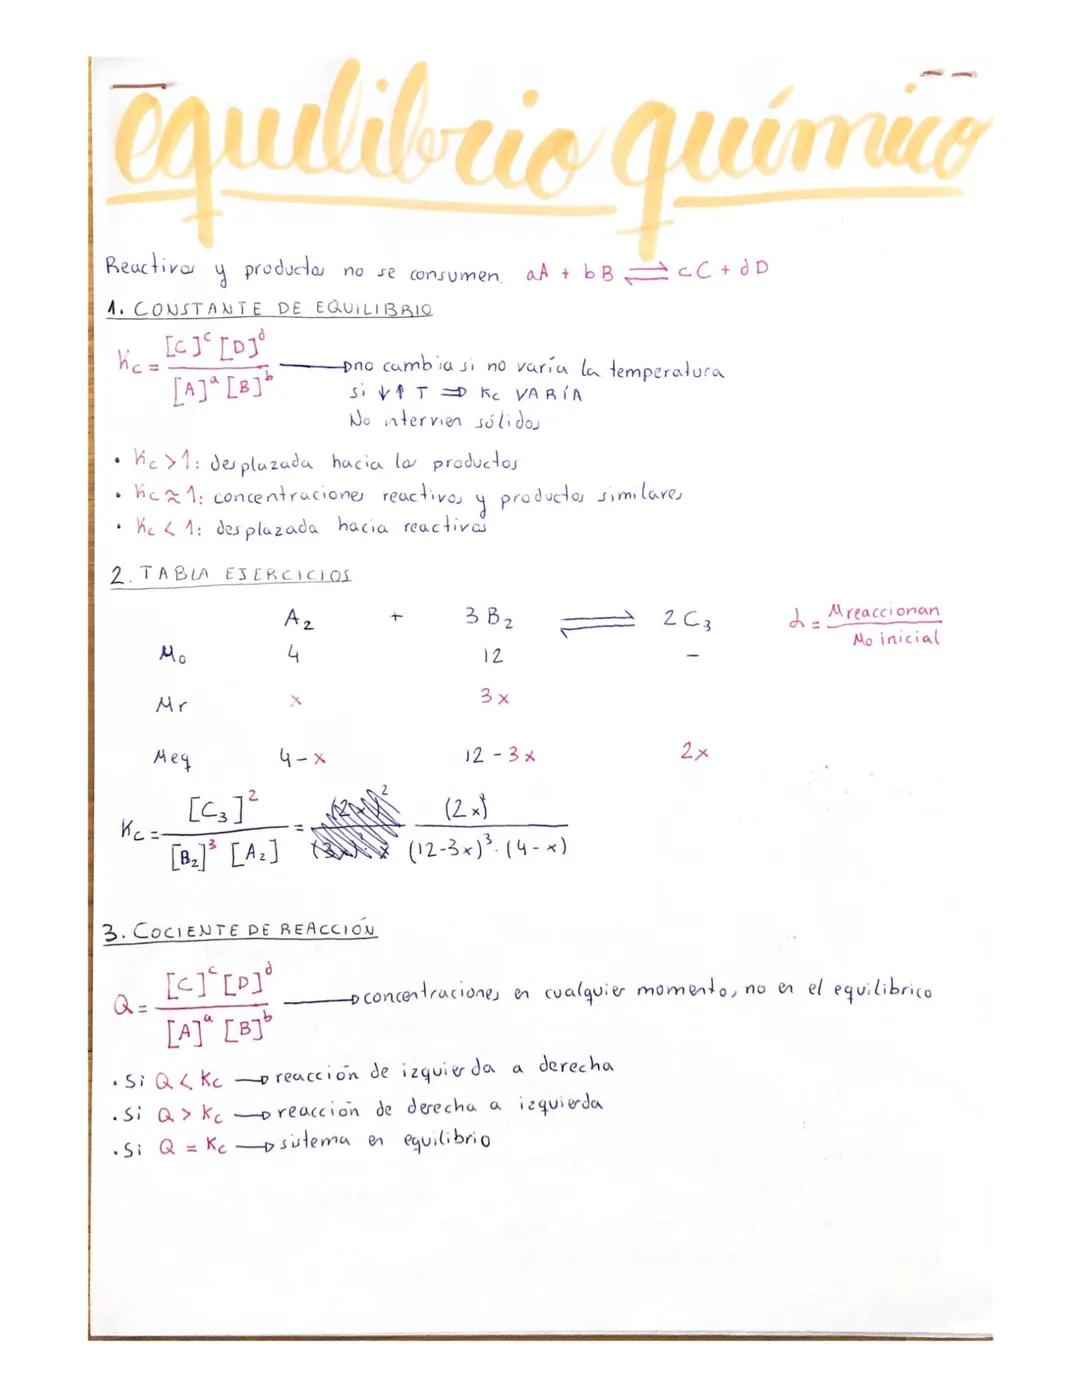 equilibrio químico
Reactivos y productos no se consumen. aA + bB ⇌ cC + dD
1. CONSTANTE DE EQUILIBRIO
Kc = [C]^c [D]^d / [A]^a [B]^b → no cambia si no varía la temperatura
si ↓↑ T ⇒ Kc VARÍA
No intervien sólidos
• Kc > 1: desplazada hacia los productos
• Kc ≈ 1: concentraciones reactivos y productos similares
• Kc < 1: desplazada hacia reactivos
2. TABLA EJERCICIOS
A2 + 3 B2 ⇌ 2 C3 α = M reaccionan / Mo inicial
Mo 4 12 –
Mr x 3x
Meq 4-x 12-3x 2x
Kc = [C3]^2 / [B2]^3 [A2] = (2x)^2 / (12-3x)^3 · (4-x)
3. COCIENTE DE REACCIÓN
Q = [C]^c [D]^d / [A]^a [B]^b → concentraciones en cualquier momento, no en el equilibrico
• Si Q < Kc → reacción de izquierda a derecha
• Si Q > Kc → reacción de derecha a izquierda
• Si Q = Kc → sistema en equilibrio